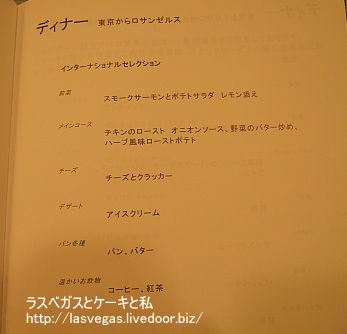 ディナー 東京からロサンゼルス
インターナショナルセレクション
前菜
スモークサーモンとポテトサラダ レモン添え
メインコース
チキンのロースト オニオンソース、野菜のバター炒め、
ハーブ風味ローストポテト
チーズ
チーズとクラッカー
デザート
アイスクリーム
パン各種
パン、バター
温かいお飲物
コーヒー、紅茶
ラスベガスとケーキと私
http://lasvegas.livedoor.biz/